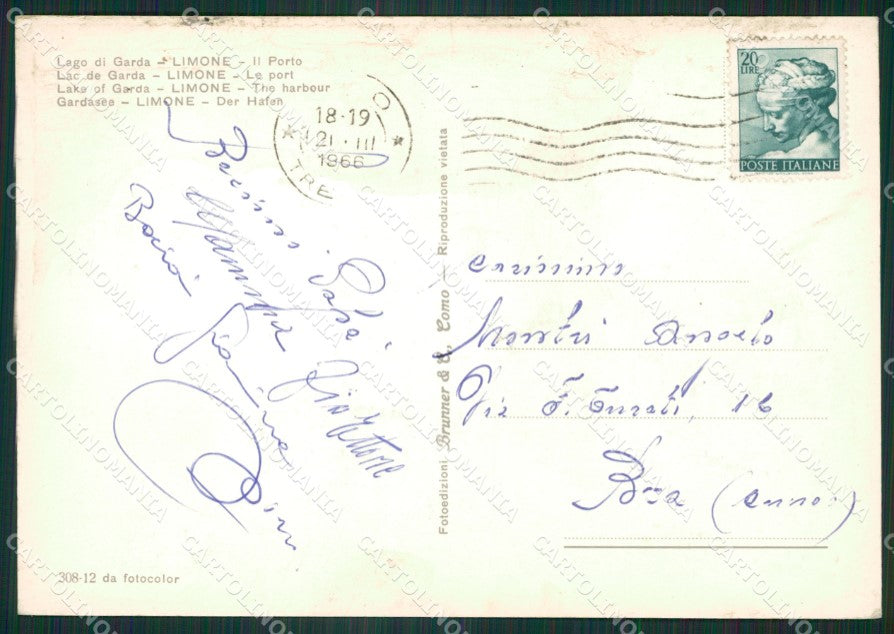 Lago di Garda – LIMONE – Il Porto
Lac de Garda – LIMONE – Le port
Lake of Garda – LIMONE – The harbour
Gardasee – LIMONE – Der Hafen
18-19
21 · III
1966
TRE
20
LIRE
POSTE ITALIANE
Papà
Mamma
Zio Ettore
Fotoedizioni Brunner & C., Como — Riproduzione vietata
Carissimo
Angelo
Via F. Turati, 16
308-12 da fotocolor
CARTOLINOMANIA